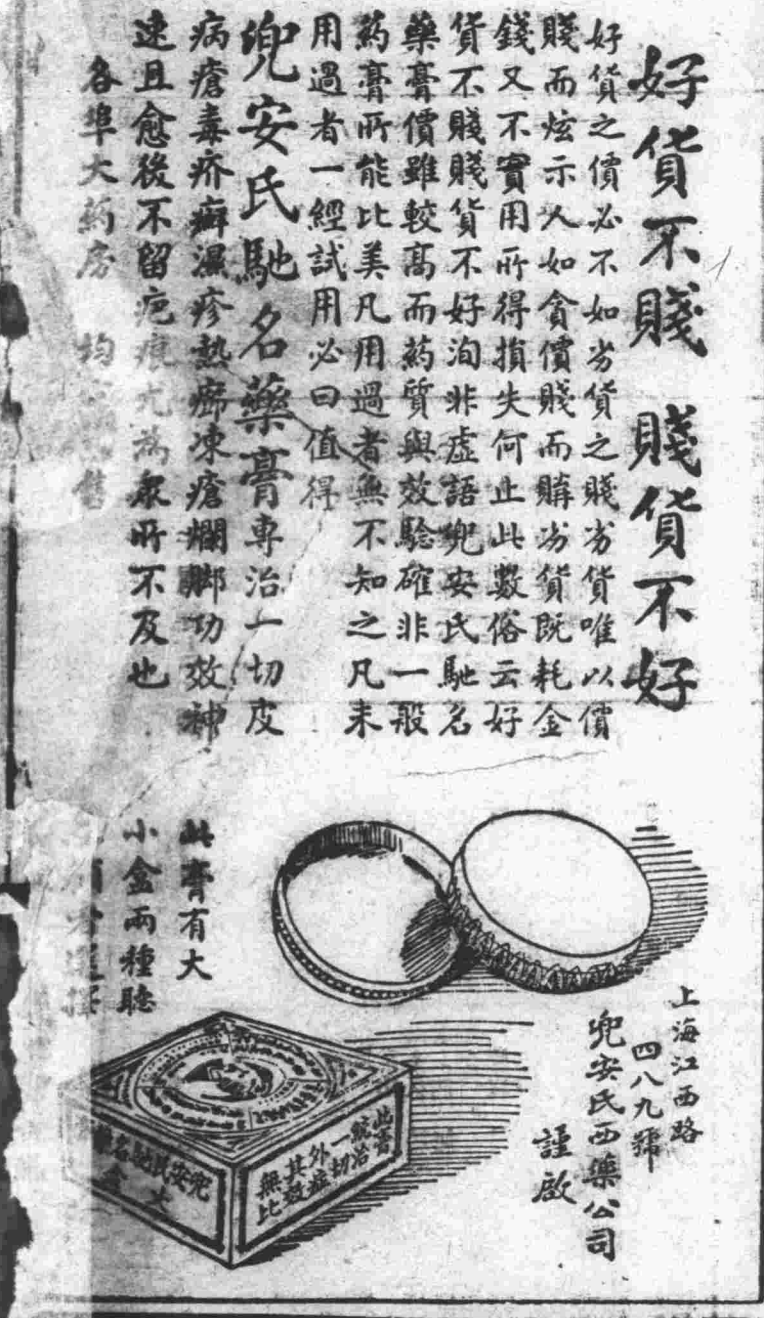 好貨不賤 賤貨不好
好貨之價必不如劣貨之賤劣貨唯以價
賤而炫示人如貪價賤而購劣貨既耗金
錢又不實用所得損失何止此數俗云好
貨不賤賤貨不好洵非虛語兜安氏馳名
藥膏價雖較高而藥質與效驗確非一般
葯膏所能比美凡用過者無不知之凡未
用過者一經試用必曰值得
兜安氏馳名藥膏專治一切皮
病瘡毒疥癬濕疹熱癤凍瘡爛脚功效神
速且愈後不留疤痕尤為衆所不及也
各埠大葯房 均 售
此膏有大
小盒兩種聽
上海江西路
四八九號
兜安氏西藥公司
謹啟
此膏
統治
一切
外症
其效
無比
兜安氏馳名
大